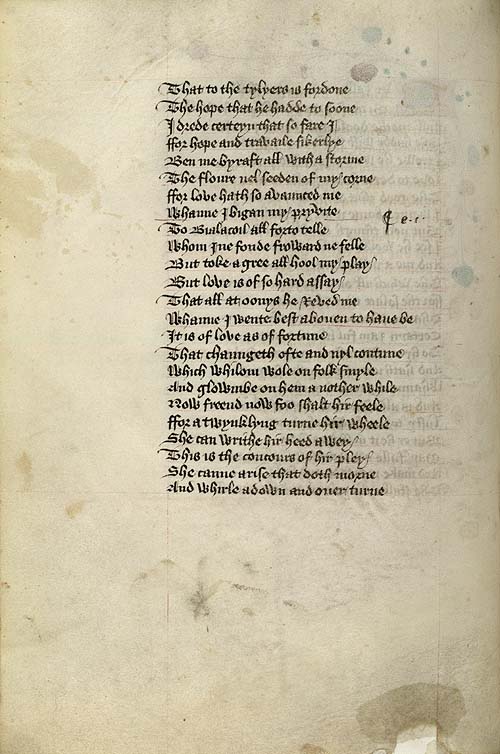 That to the tylyers is fordone
The hope that he hadde to soone
I drede certeyn that so fare I
ffor hope and travaile sikerlye
Ben me byraft all with a storme
The floure nel seeden of my corne
ffor love hath so avaunced me
Whanne I bigan my pryvite
To Bialacoil all forto telle
Whom I ne fonde froward ne felle
But toke a gree all hool my play
But love is of so hard assay
That all at oonys he Reved me
Whanne I wente best aboven to haue be
It is of love as of fortune
That chaungeth ofte and nyl contune
Which whilom wole on folk smyle
And glowmbe on hem a nother while
Now freend now foo shalt hir feele
ffor a twynklyng turne hir wheele
She can writhe hir heed awey
This is the concours of hir pley
She canne arise that doth morne
And whirle adown and ouer turne